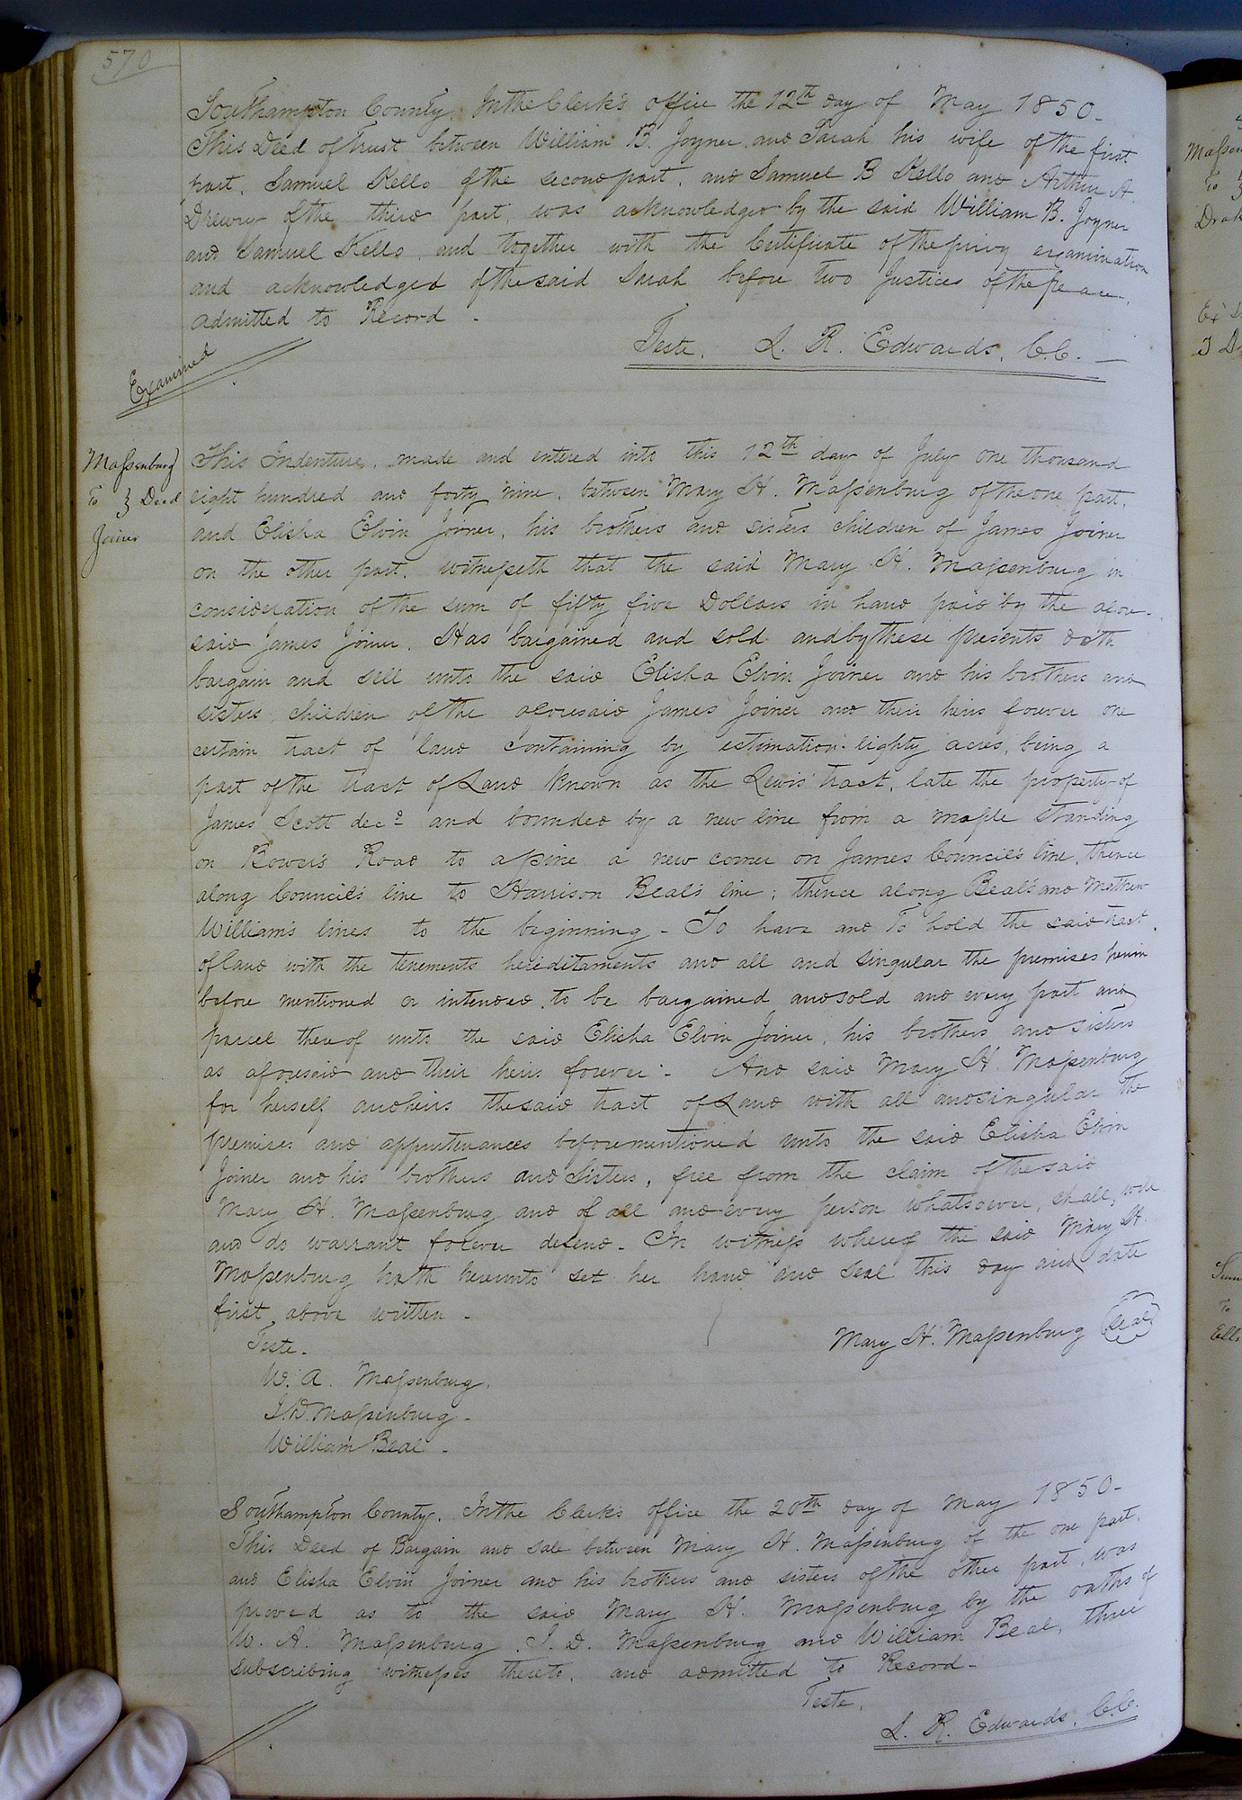 570
Southampton County, In the Clerk's office the 12th day of May 1850-
This Deed of Trust between William B. Joyner and Sarah his wife of the first
part, Samuel Kello of the second part, and Samuel B Kello and Arthur A
Drewry of the third part, was acknowledged by the said William B. Joyner
and Samuel Kello, and together with the Certificate of the privy examination
and acknowledged of the said Sarah before two Justices of the peace,
admitted to Record -
Teste, L. R. Edwards, C.C. -
Examined
Maſsenburg
To } Deed
Joiner
This Indenture, made and entered into this 12th day of July one thousand
eight hundred and forty nine, between Mary H. Maſsenburg of the one part,
and Elisha Elvin Joiner, his brothers and sisters children of James Joiner
on the other part. Witneſseth that the said Mary H. Maſsenburg in
consideration of the sum of fifty five Dollars in hand paid by the afore-
said James Joiner. Has bargained and sold and by these presents doth
bargain and sell unto the said Elisha Elvin Joiner and his brothers and
sisters children of the aforesaid James Joiner and their heirs forever one
certain tract of land containing by estimation eighty acres, being a
part of the tract of Land known as the Lewis tract, late the property of
James Scott decd and bounded by a new line from a maple standing
on Bowers Road to a pine a new corner on James Council's line, thence
along Council's line to Harrison Beal's line; thence along Beal's and Mathew
William's lines to the beginning - To have and To hold the said tract
of land with the tenements hereditaments and all and singular the premises herein
before mentioned or intended to be bargained and sold and every part and
parcel thereof unto the said Elisha Elvin Joiner, his brothers and sisters
as aforesaid and their heirs forever - And said Mary H. Maſsenburg
for herself and heirs the said tract of Land with all and singular the
premises and appurtenances before mentioned unto the said Elisha Elvin
Joiner and his brothers and Sisters, free from the claim of the said
Mary H. Maſsenburg and of all and every person whatsoever, shall, will
and do warrant forever defend - In witneſs whereof the said Mary H.
Maſsenburg hath hereunto set her hand and seal this day and date
first above written -
Mary H. Maſsenburg Seal
Teste -
W. A. Maſsenburg,
J. D. Maſsenburg -
William Beal -
Southampton County, In the Clerk's office the 20th day of May 1850-
This Deed of Bargain and sale between Mary H. Maſsenburg of the one part,
and Elisha Elvin Joiner and his brothers and sisters of the other part, was
proved as to the said Mary H. Maſsenburg by the oaths of
W. A. Maſsenburg, J. D. Maſsenburg and William Beal, three
subscribing witneſses thereto, and admitted to Record -
Teste,
L. R. Edwards, C.C.